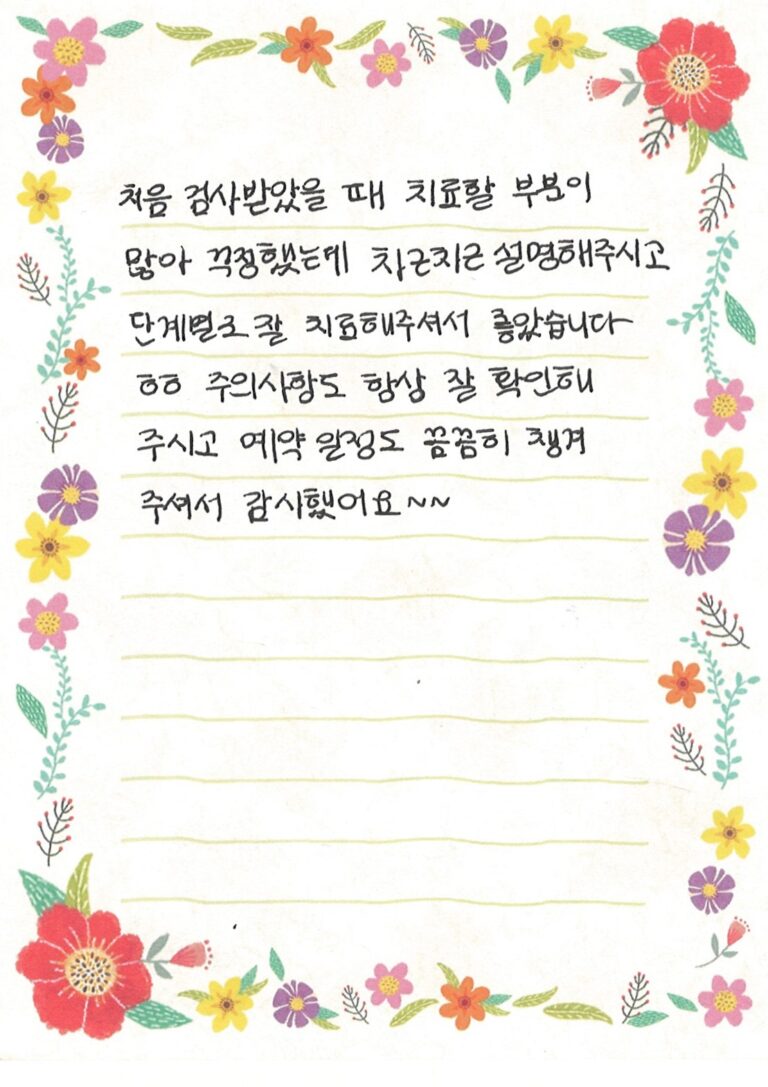 처음 검사받았을 때 치료할 부분이
많아 걱정했는데 차근차근 설명해주시고
단계별로 잘 치료해주셔서 좋았습니다
ㅎㅎ 주의사항도 항상 잘 확인해
주시고 예약 일정도 꼼꼼히 챙겨
주셔서 감사했어요~~